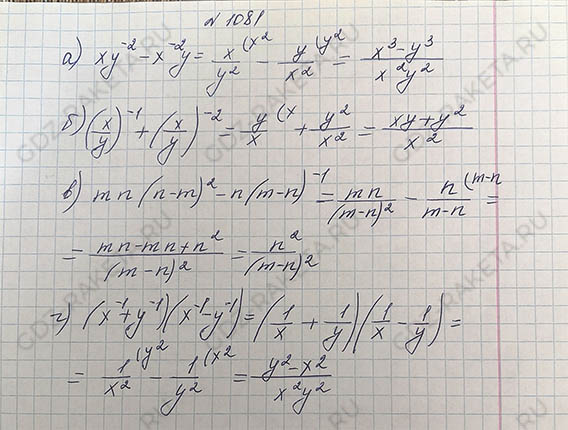 № 1081
а) xy⁻² - x⁻²y = x/y² (x² - y/x² (y² = x³-y³/x²y²
б) (x/y)⁻¹ + (x/y)⁻² = y/x (x + y²/x² = xy+y²/x²
в) mn (n-m)² - n (m-n)⁻¹ = mn/(m-n)² - n/m-n (m-n =
= mn-mn+n²/(m-n)² = n²/(m-n)²
г) (x⁻¹+y⁻¹)(x⁻¹-y⁻¹) = (1/x + 1/y)(1/x - 1/y) =
= 1/x² (y² - 1/y² (x² = y²-x²/x²y²
GDZ-RAKETA.RU